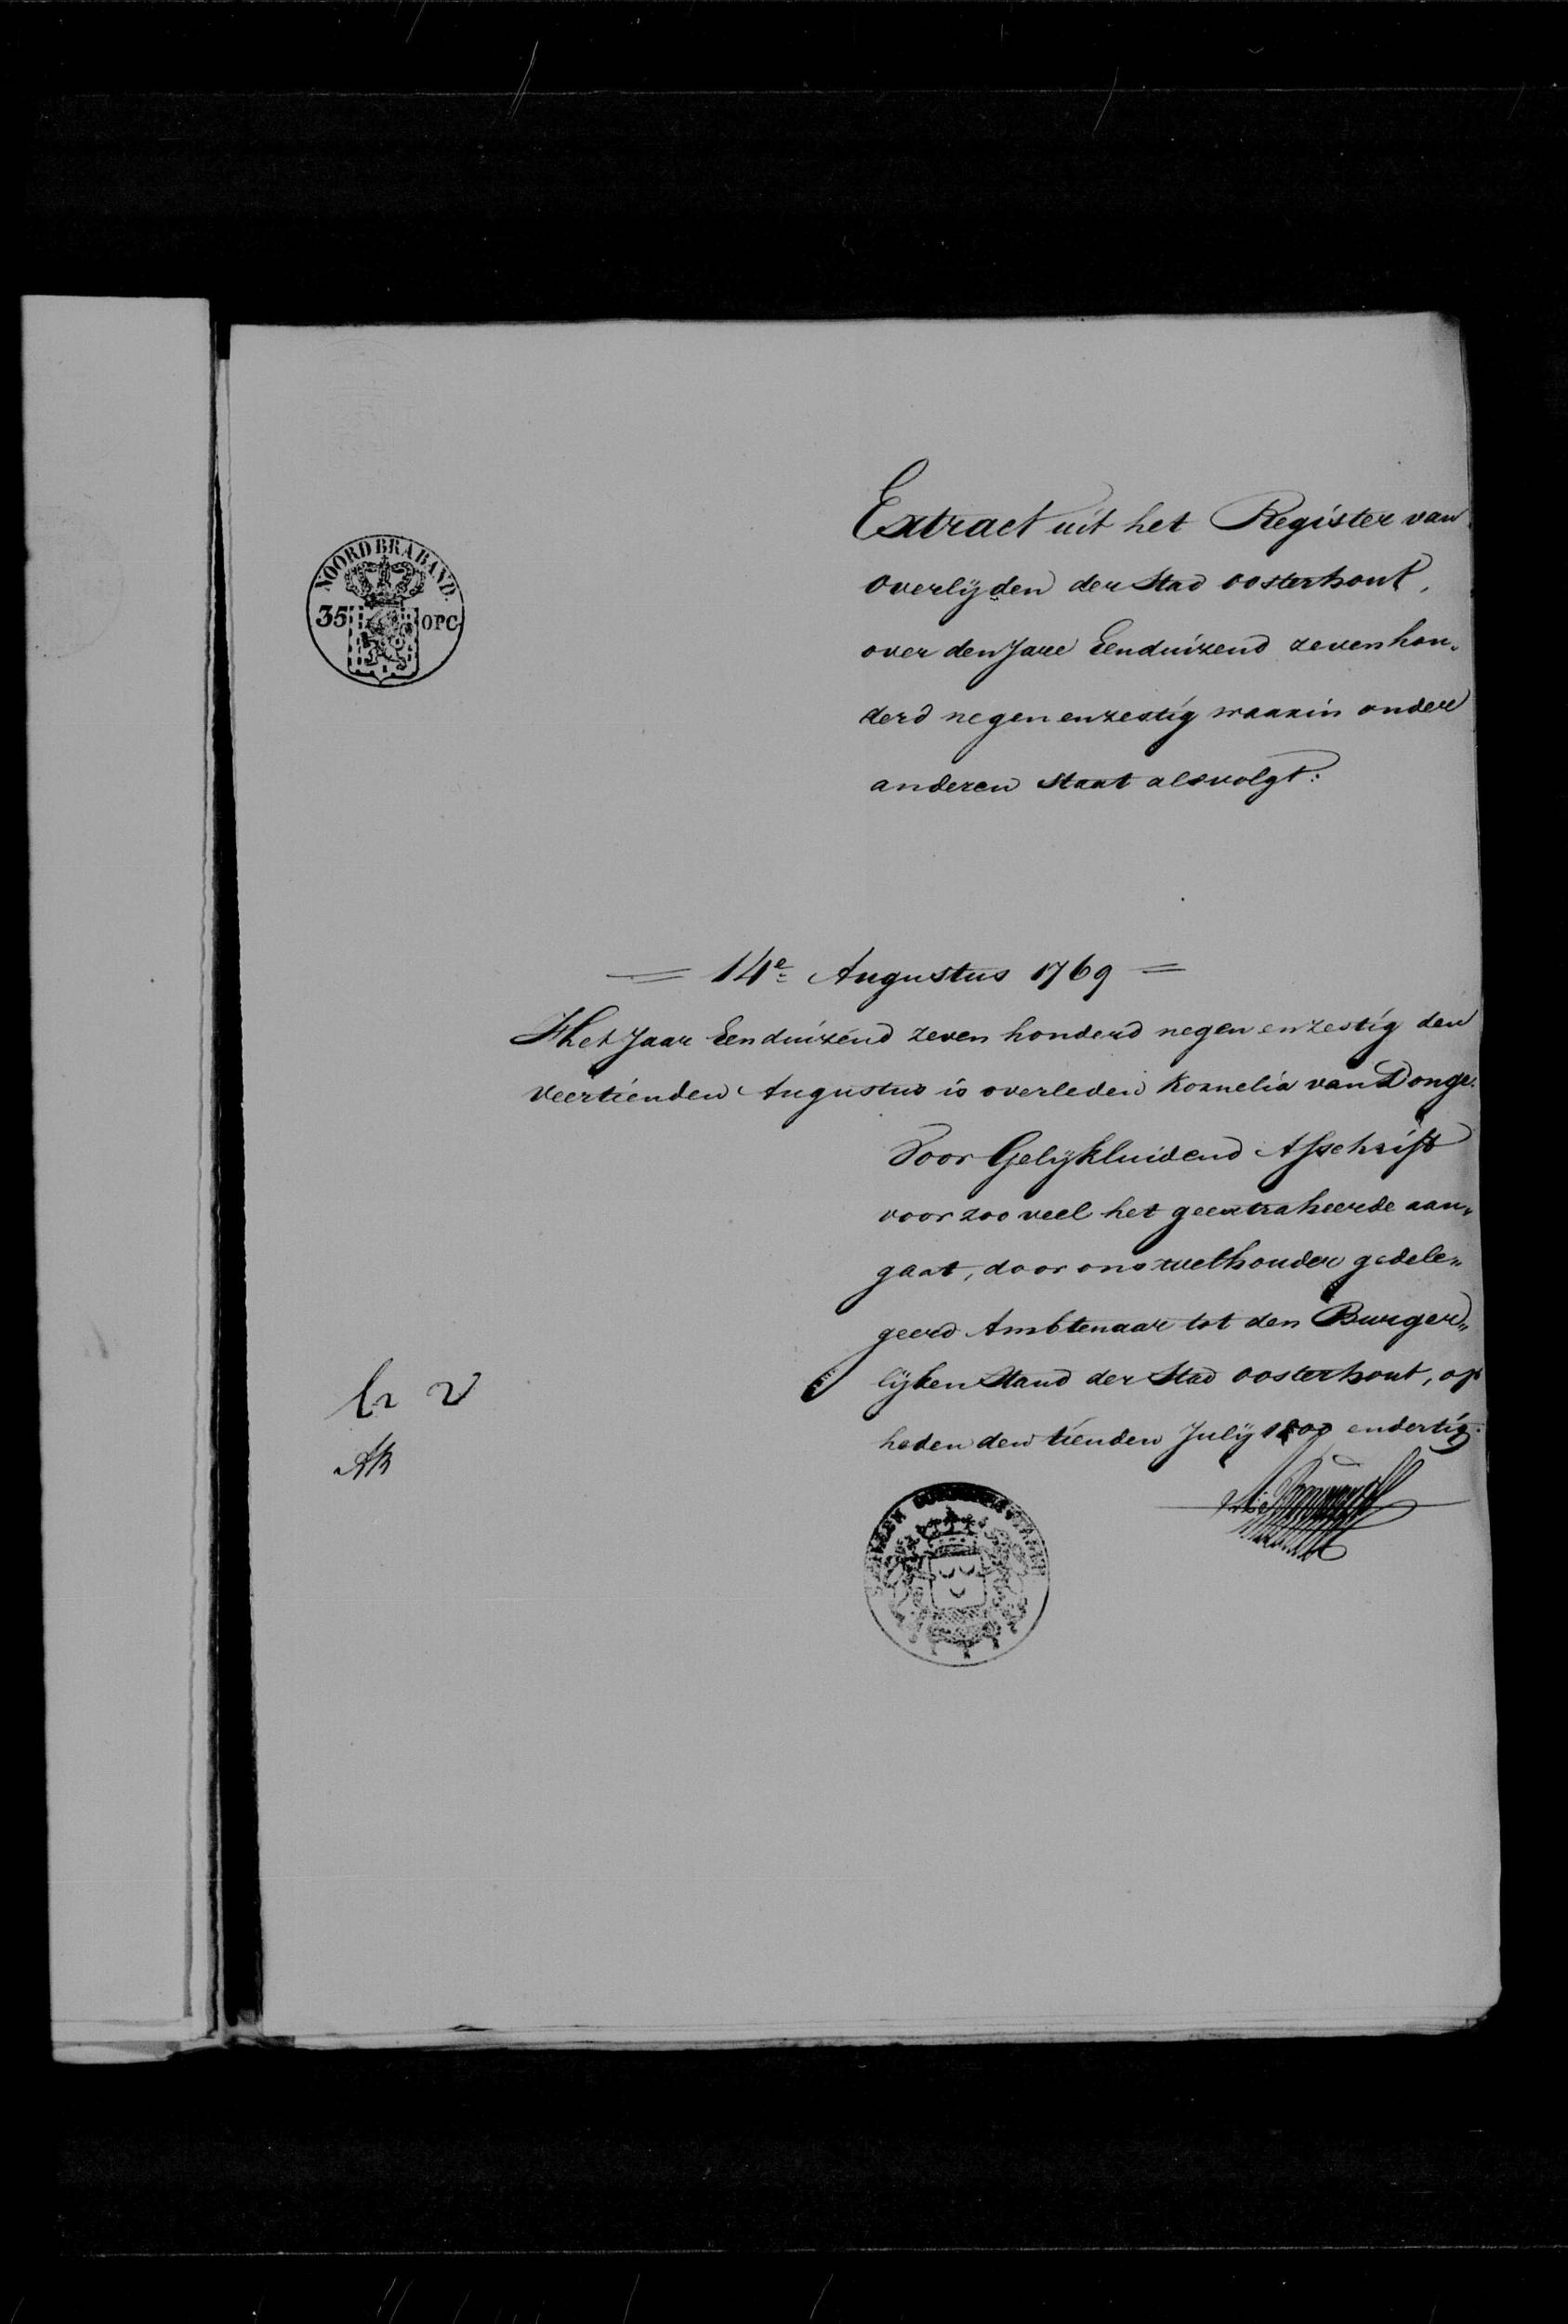 NOORD BRABAND.
35 OPC.
Extract uit het Register van
overlijden der Stad oosterhout,
over den Jare Eenduizend zevenhon„
derd negen en zestig waarin onder
anderen Staat alsvolgt:
= 14e Augustus 1769 =
Het Jaar Eenduizend zeven honderd negen en zestig den
veertienden Augustus is overleden Kornelia van Donge.
Voor Gelijkluidend Afschrift
voor zoo veel het geextraheerde aan„
gaat, door ons wethouder gedele„
geerd Ambtenaar tot den Burger„
lijken Stand der Stad oosterhout, op
heden den tienden Julij 1800 endertig.